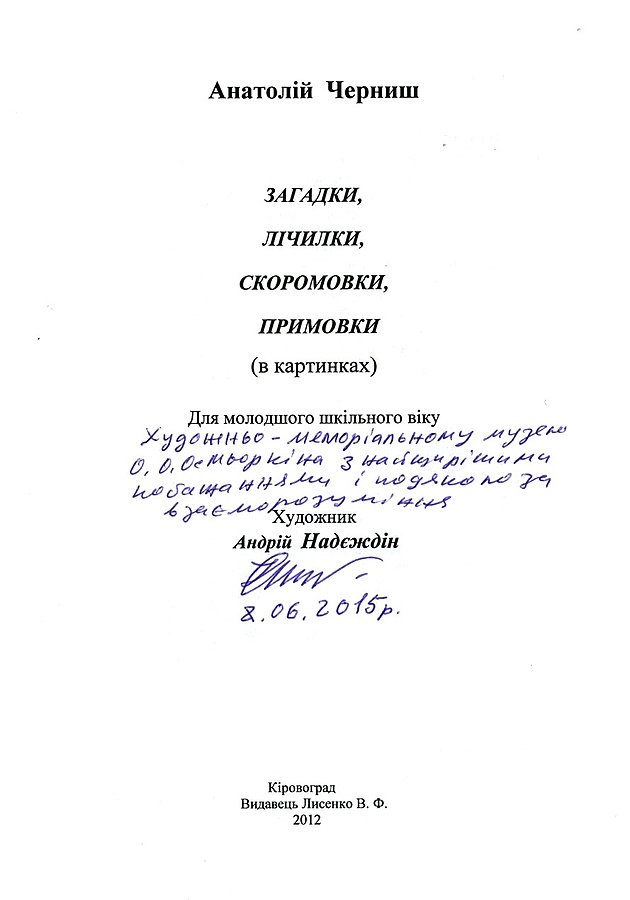 Анатолій Черниш
ЗАГАДКИ,
ЛІЧИЛКИ,
СКОРОМОВКИ,
ПРИМОВКИ
(в картинках)
Для молодшого шкільного віку
Художньо - меморіальному музею
О. О. Осмьоркіна з найщирішими
побажаннями і подякою за
взаєморозуміння
Художник
Андрій Надєждін
8.06.2015р.
Кіровоград
Видавець Лисенко В. Ф.
2012